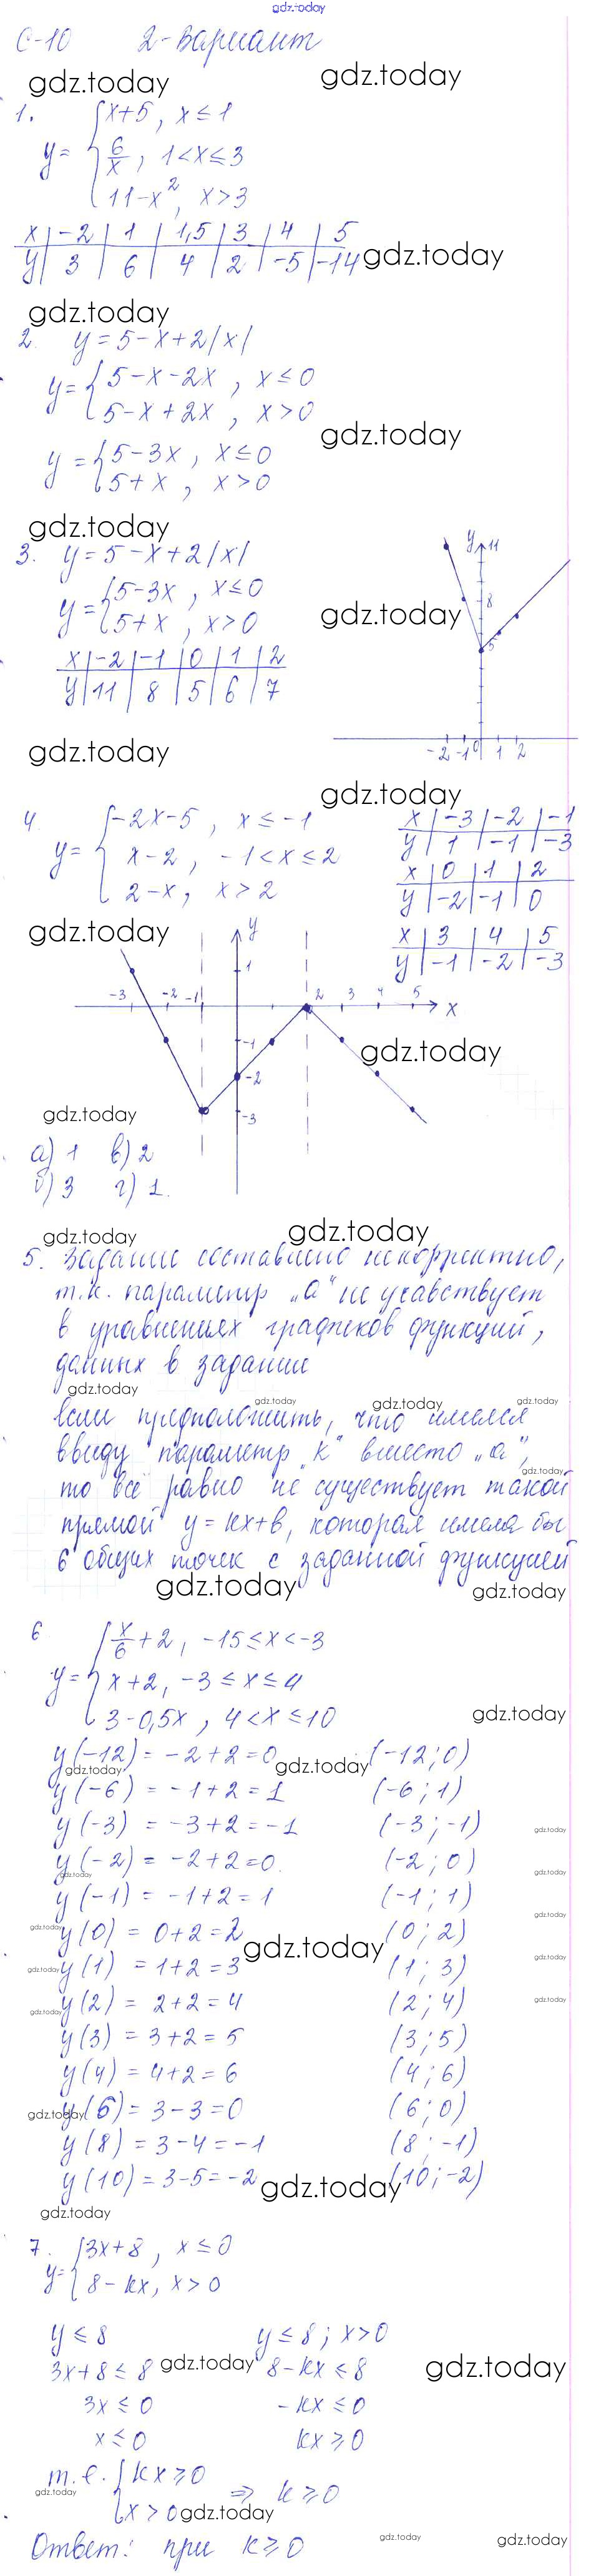 gdz.today
С-10 2-Вариант
gdz.today gdz.today
1. y = { x+5, x ≤ 1
6/x, 1 < x ≤ 3
11-x², x > 3
x | -2 | 1 | 1,5 | 3 | 4 | 5
y | 3 | 6 | 4 | 2 | -5 | -14
gdz.today
gdz.today
2. y = 5-x+2|x|
y = { 5-x-2x, x ≤ 0
5-x+2x, x > 0
gdz.today
y = { 5-3x, x ≤ 0
5+x, x > 0
gdz.today
3. y = 5-x+2|x|
y = { 5-3x, x ≤ 0
5+x, x > 0
gdz.today
x | -2 | -1 | 0 | 1 | 2
y | 11 | 8 | 5 | 6 | 7
y 11
8
5
-2 -1 0 1 2
gdz.today
gdz.today
4. y = { -2x-5, x ≤ -1
x-2, -1 < x ≤ 2
2-x, x > 2
x | -3 | -2 | -1
y | 1 | -1 | -3
x | 0 | 1 | 2
y | -2 | -1 | 0
x | 3 | 4 | 5
y | -1 | -2 | -3
gdz.today
y
1
-3 -2 -1 2 3 4 5 x
-1
-2
-3
gdz.today
gdz.today
а) 1 в) 2
б) 3 г) 1.
gdz.today gdz.today
5. Задание составлено некорректно,
т.к. параметр „a" не учавствует
в уравнениях графиков функций,
данных в задании
gdz.today
gdz.today gdz.today gdz.today
если предположить, что имелся
ввиду параметр „k" вместо „a",
gdz.today
то всё равно не существует такой
прямой y = kx+b, которая имела бы
6 общих точек с заданной функцией
gdz.today gdz.today
6 y = { x/6+2, -15 ≤ x < -3
x+2, -3 ≤ x ≤ 4
3-0,5x, 4 < x ≤ 10
gdz.today
y(-12) = -2+2 = 0 (-12; 0)
gdz.today gdz.today
y(-6) = -1+2 = 1 (-6; 1)
y(-3) = -3+2 = -1 (-3; -1)
gdz.today
y(-2) = -2+2 = 0. (-2; 0)
gdz.today gdz.today
y(-1) = -1+2 = 1 (-1; 1)
gdz.today
y(0) = 0+2 = 2 (0; 2)
gdz.today gdz.today gdz.today
y(1) = 1+2 = 3 (1; 3)
gdz.today
y(2) = 2+2 = 4 (2; 4)
gdz.today gdz.today
y(3) = 3+2 = 5 (3; 5)
y(4) = 4+2 = 6 (4; 6)
y(6) = 3-3 = 0 (6; 0)
gdz.today
y(8) = 3-4 = -1 (8; -1)
y(10) = 3-5 = -2 (10; -2)
gdz.today
gdz.today
7. y = { 3x+8, x ≤ 0
8-kx, x > 0
y ≤ 8 y ≤ 8; x > 0
3x+8 ≤ 8 8-kx ≤ 8
gdz.today gdz.today
3x ≤ 0 -kx ≤ 0
x ≤ 0 kx ≥ 0
т.е. { kx ≥ 0
x > 0 ⇒ k ≥ 0
gdz.today gdz.today
Ответ: при k ≥ 0
gdz.today gdz.today